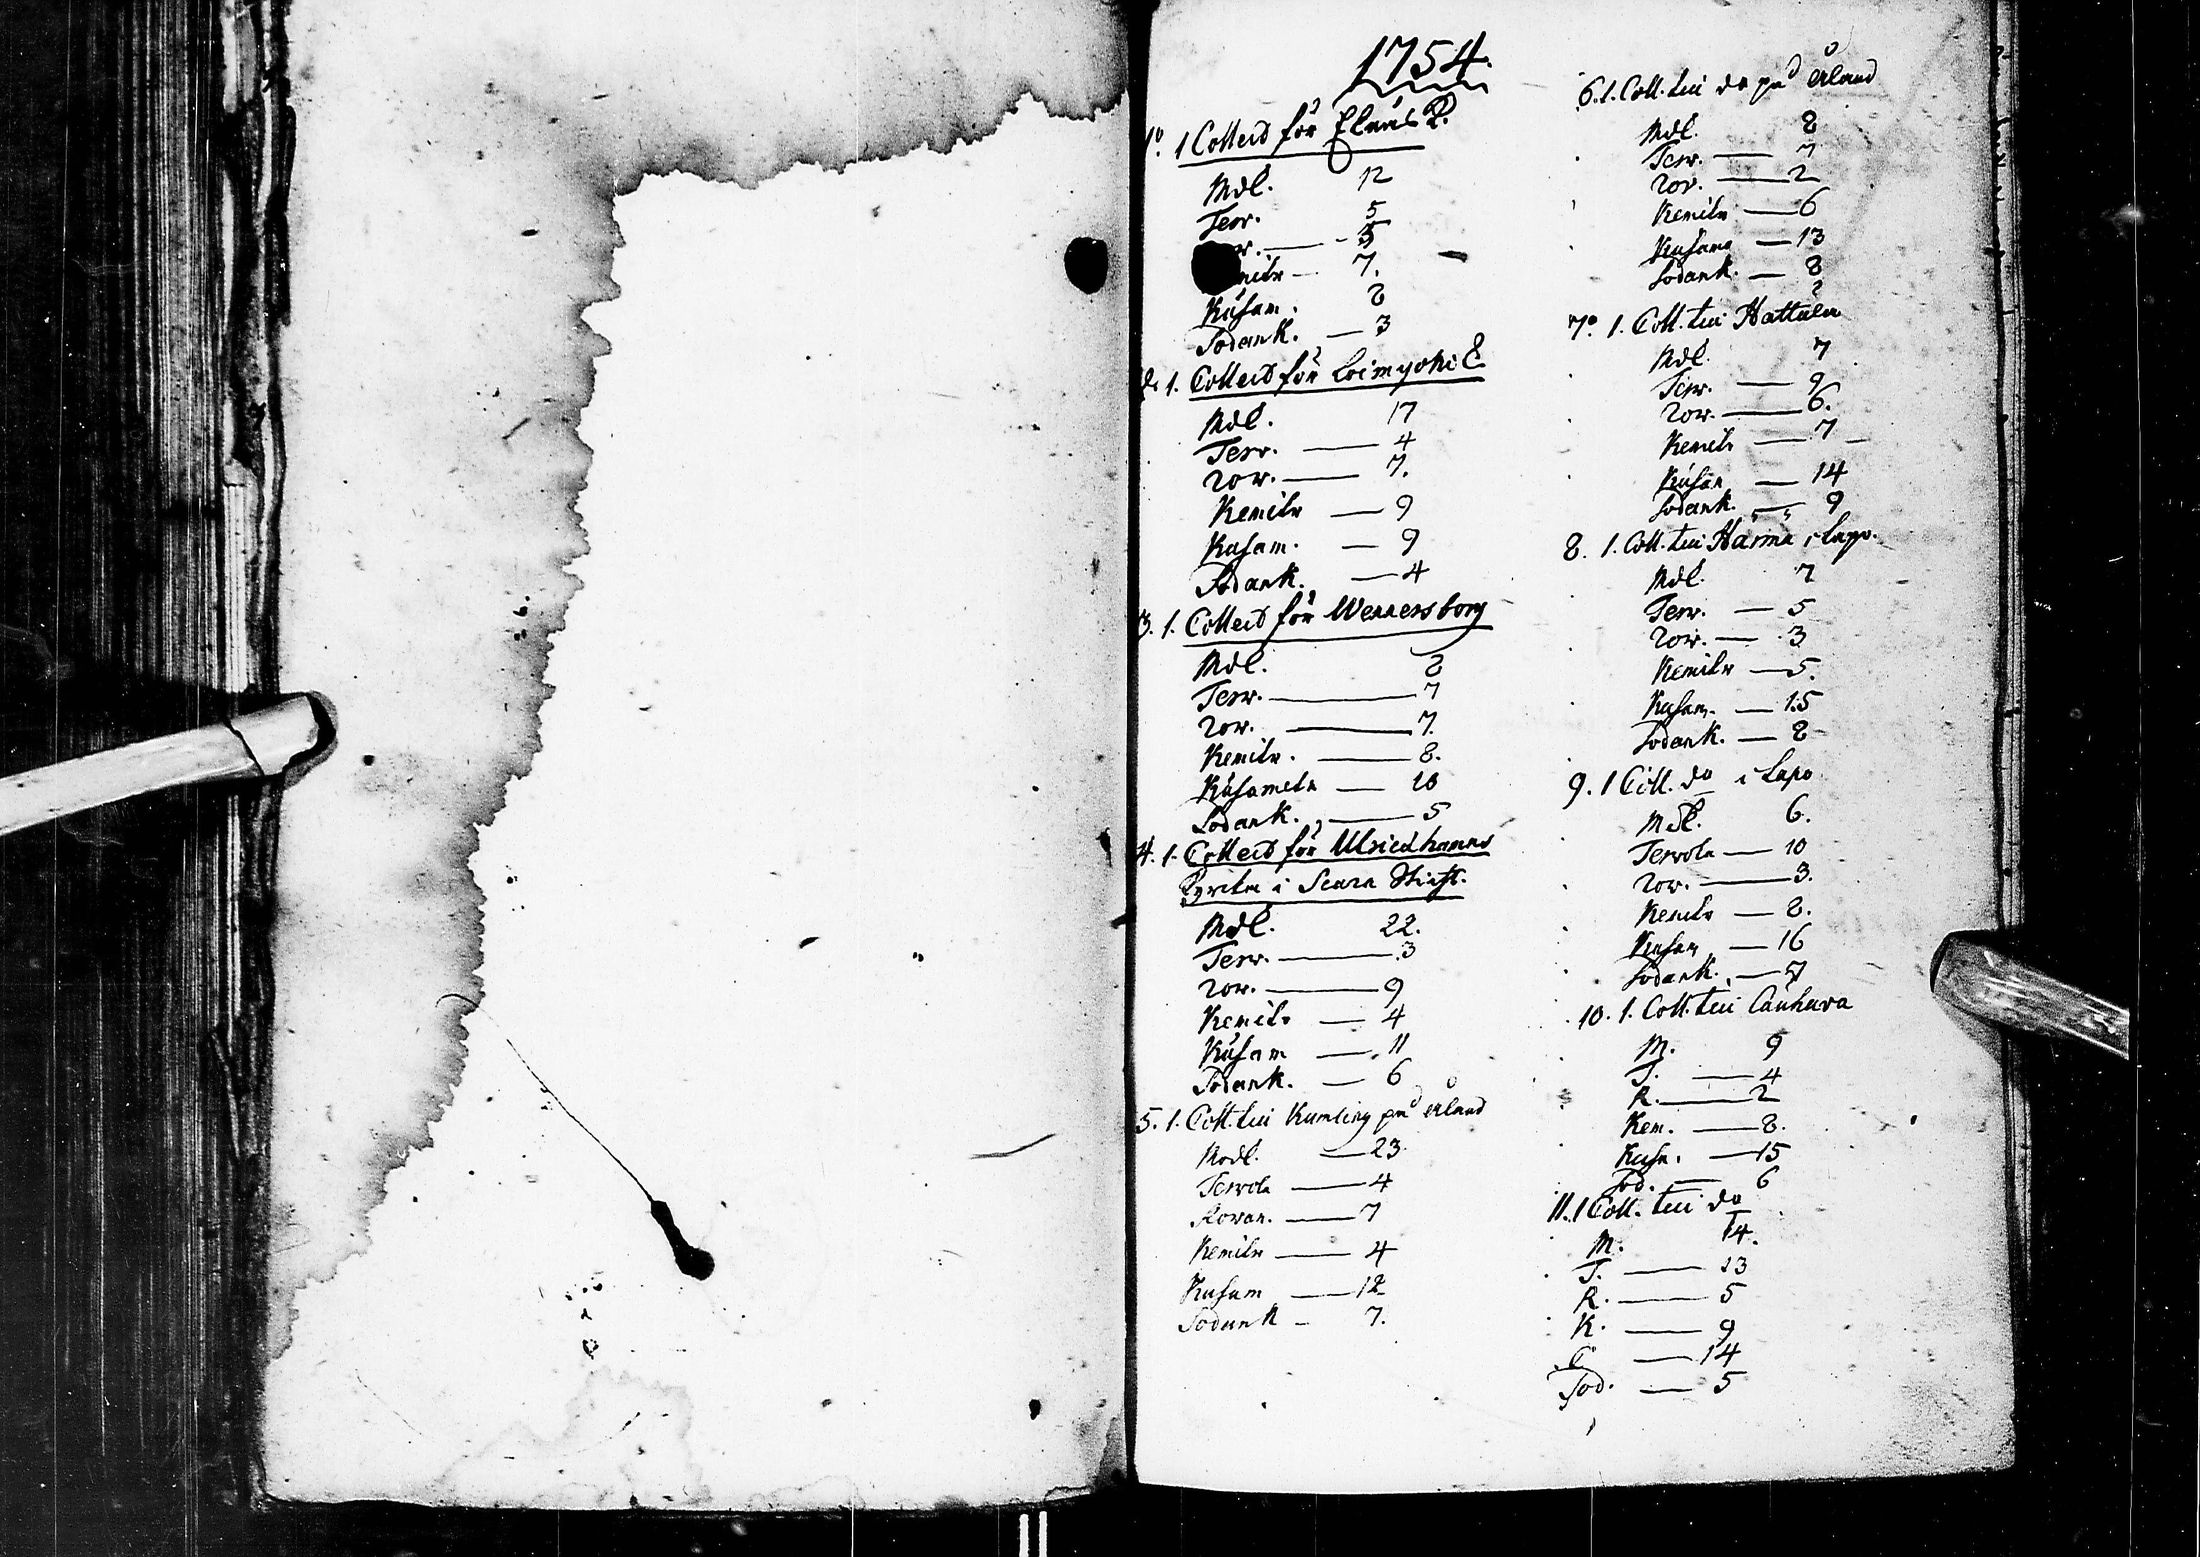 1754.
1º. 1 Collect för Elnäs K.
Mdl. 12
Terv. 5
w. — 5
mitr — 7.
Kusam. 8
Sodank. — 3
2. 1. Collect för Loimjoki C.
Mdl. 17
Terv. — 4
Row. — 7.
Kemitr — 9
Kusam. — 9
Sodank. — 4
3. 1. Collect för Wenersborg
Mdl. 8
Terw. — 7
Row. — 7.
Kemitr. — 8.
Kusametr — 10
Sodank. — 5
4. 1. Collect för Ulricæhamns
Kyrka i Scara Stift.
Mdl. 22.
Terw. — 3
Row. — 9
Kemitr — 4
Kusam — 11
Sodank. — 6
5. 1. Coll. till Kumling på Åland
Modl. — 23.
Tervola — 4
Rowan. — 7
Kemitr — 4
Kusam — 12
Sodank — 7.
6. 1. Coll. till do på Åland
Mdl. 8
Terw. — 7
Row. — 2
Kemitr — 6
Kusamo — 13
Sodank. — 8
7º 1. Coll. till Hattula
Mdl. 7
Terw. — 9
Row. — 6.
Kemitr — 7
Kusam — 14
Sodank. — 9
8. 1. Coll. till Härmä i Lapo.
Mdl. 7
Terw. — 5
Row. — 3
Kemitr — 5.
Kusam. — 15
Sodank. — 8
9. 1 Coll. do i Lapo
Mdl. 6.
Tervola — 10
Row. — 3.
Kemitr — 8.
Kusam — 16
Sodank. — 7
10. 1. Coll. till Cauhava
M. 9
T. — 4
R. — 2
Kem. — 8.
Kusa. — 15
Sod. — 6
11. 1 Coll. till do
M. 14.
T. — 13
R. — 5
K. — 9
C — 14
Sod. — 5